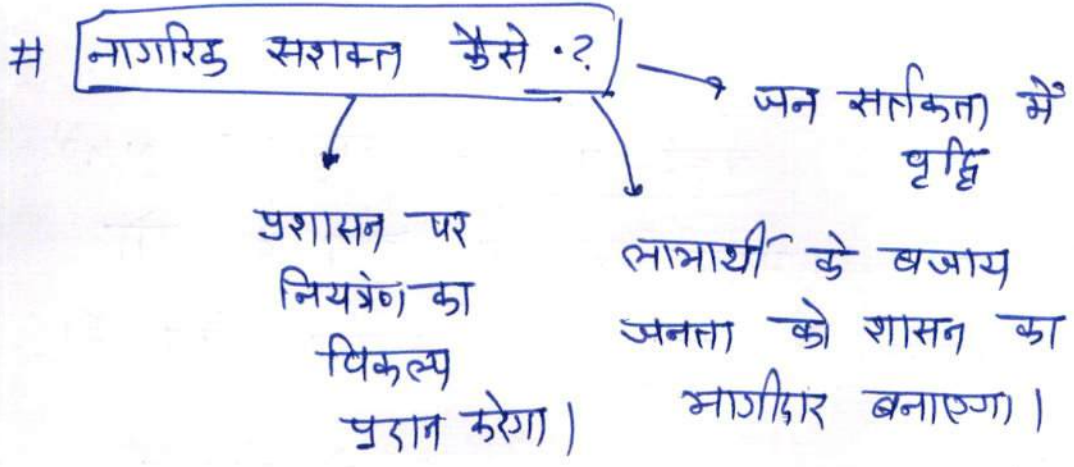 # नागरिक सशक्त कैसे ?
जन सर्तकता में
वृद्धि
प्रशासन पर
नियत्रंण का
विकल्प
प्रदान करेगा।
लाभार्थी के बजाय
जनता को शासन का
भागीदार बनाएगा।